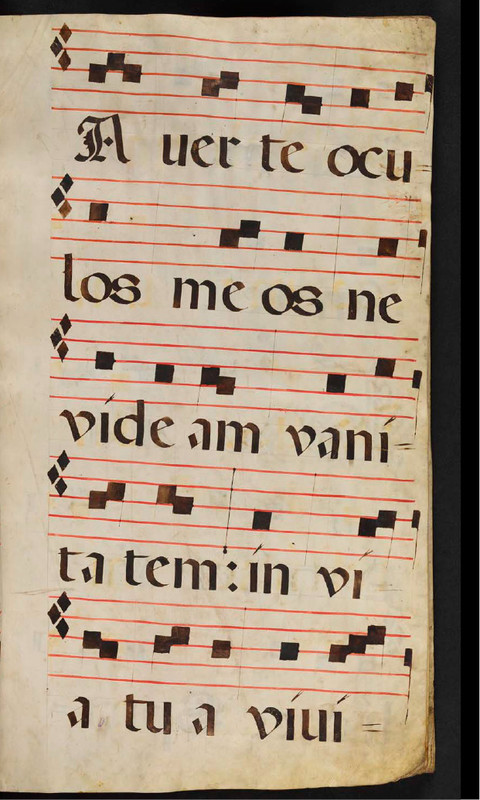 A uer te ocu=
los me os ne
vide am vani=
ta tem: in vi=
a tu a viui=